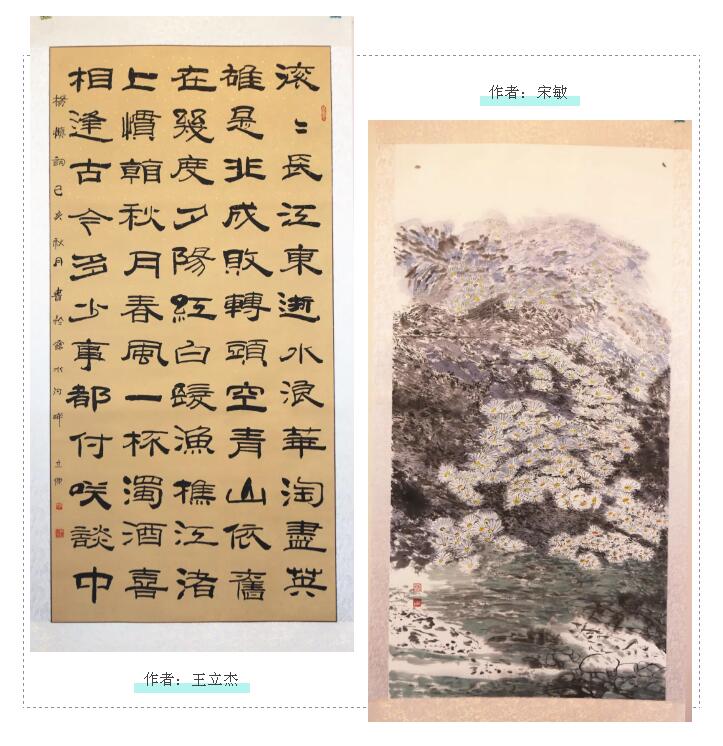 作者：宋敏
滚〻長江東逝水浪華淘盡英
雄是非成敗轉頭空青山依舊
在幾度夕陽紅白髮漁樵江渚
上慣看秋月春風一杯濁酒喜
相逢古今多少事都付咲談中
楊慎詞己亥秋月書於水河畔
作者：王立杰